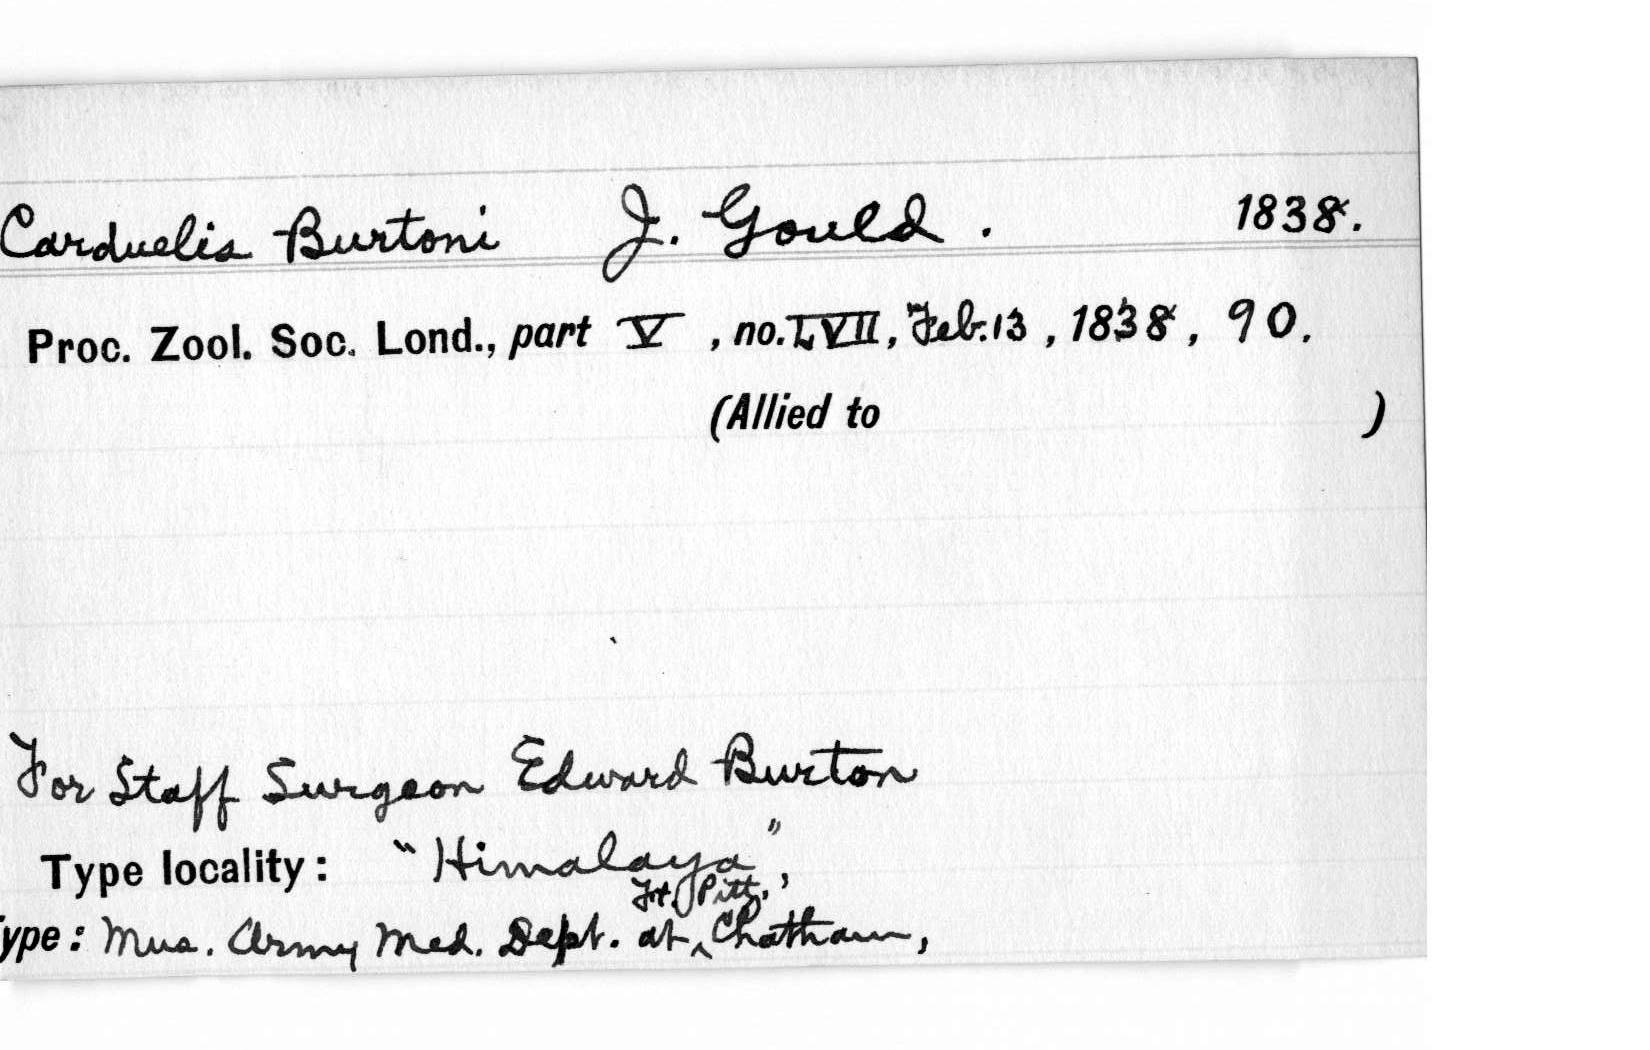 Carduelis Burtoni J. Gould. 1838.
Proc. Zool. Soc. Lond., part V, no. LVII, Feb. 13, 1838, 90.
(Allied to )
For Staff Surgeon Edward Burton
Type locality: "Himalaya",
Ft. Pitt,
ype: Mus. Army Med. Dept. at ^ Chatham,